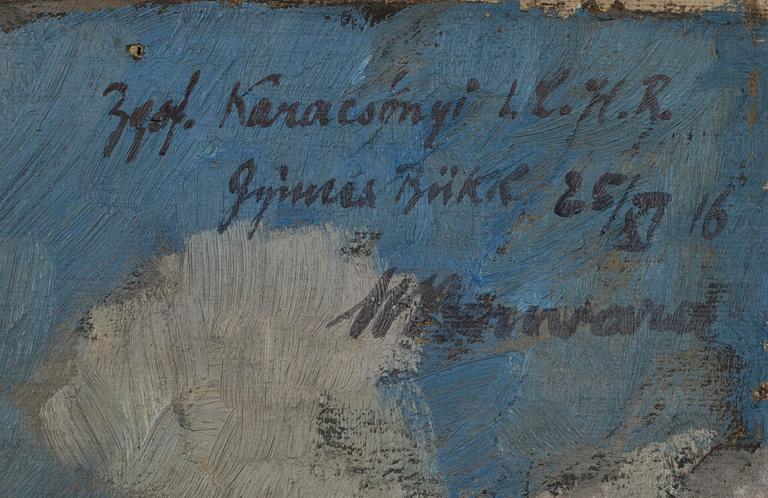 Zgsf. Karacsónyi L.H.R.
Gyimes Bükk 25/XI 16